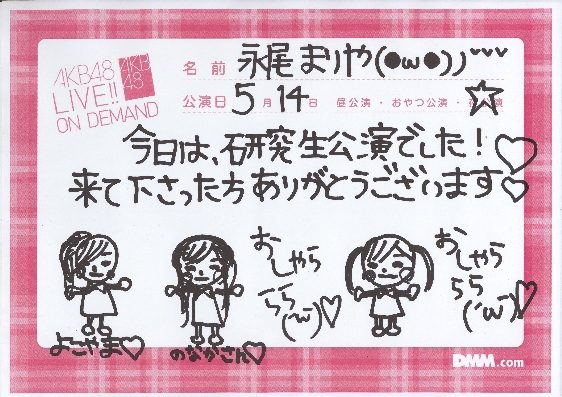 AKB48
LIVE!!
ON DEMAND
AKB
48
名前 永尾まりや(●ω●))
公演日 5月14日 昼公演・おやつ公演・夜公演
今日は、研究生公演でした！♡
来て下さった方ありがとうございます♡
おしゃら
らら
(´ω`)♡
おしゃら
らら
(´ω`)♡
よこやま♡
のなかさん♡
DMM.com